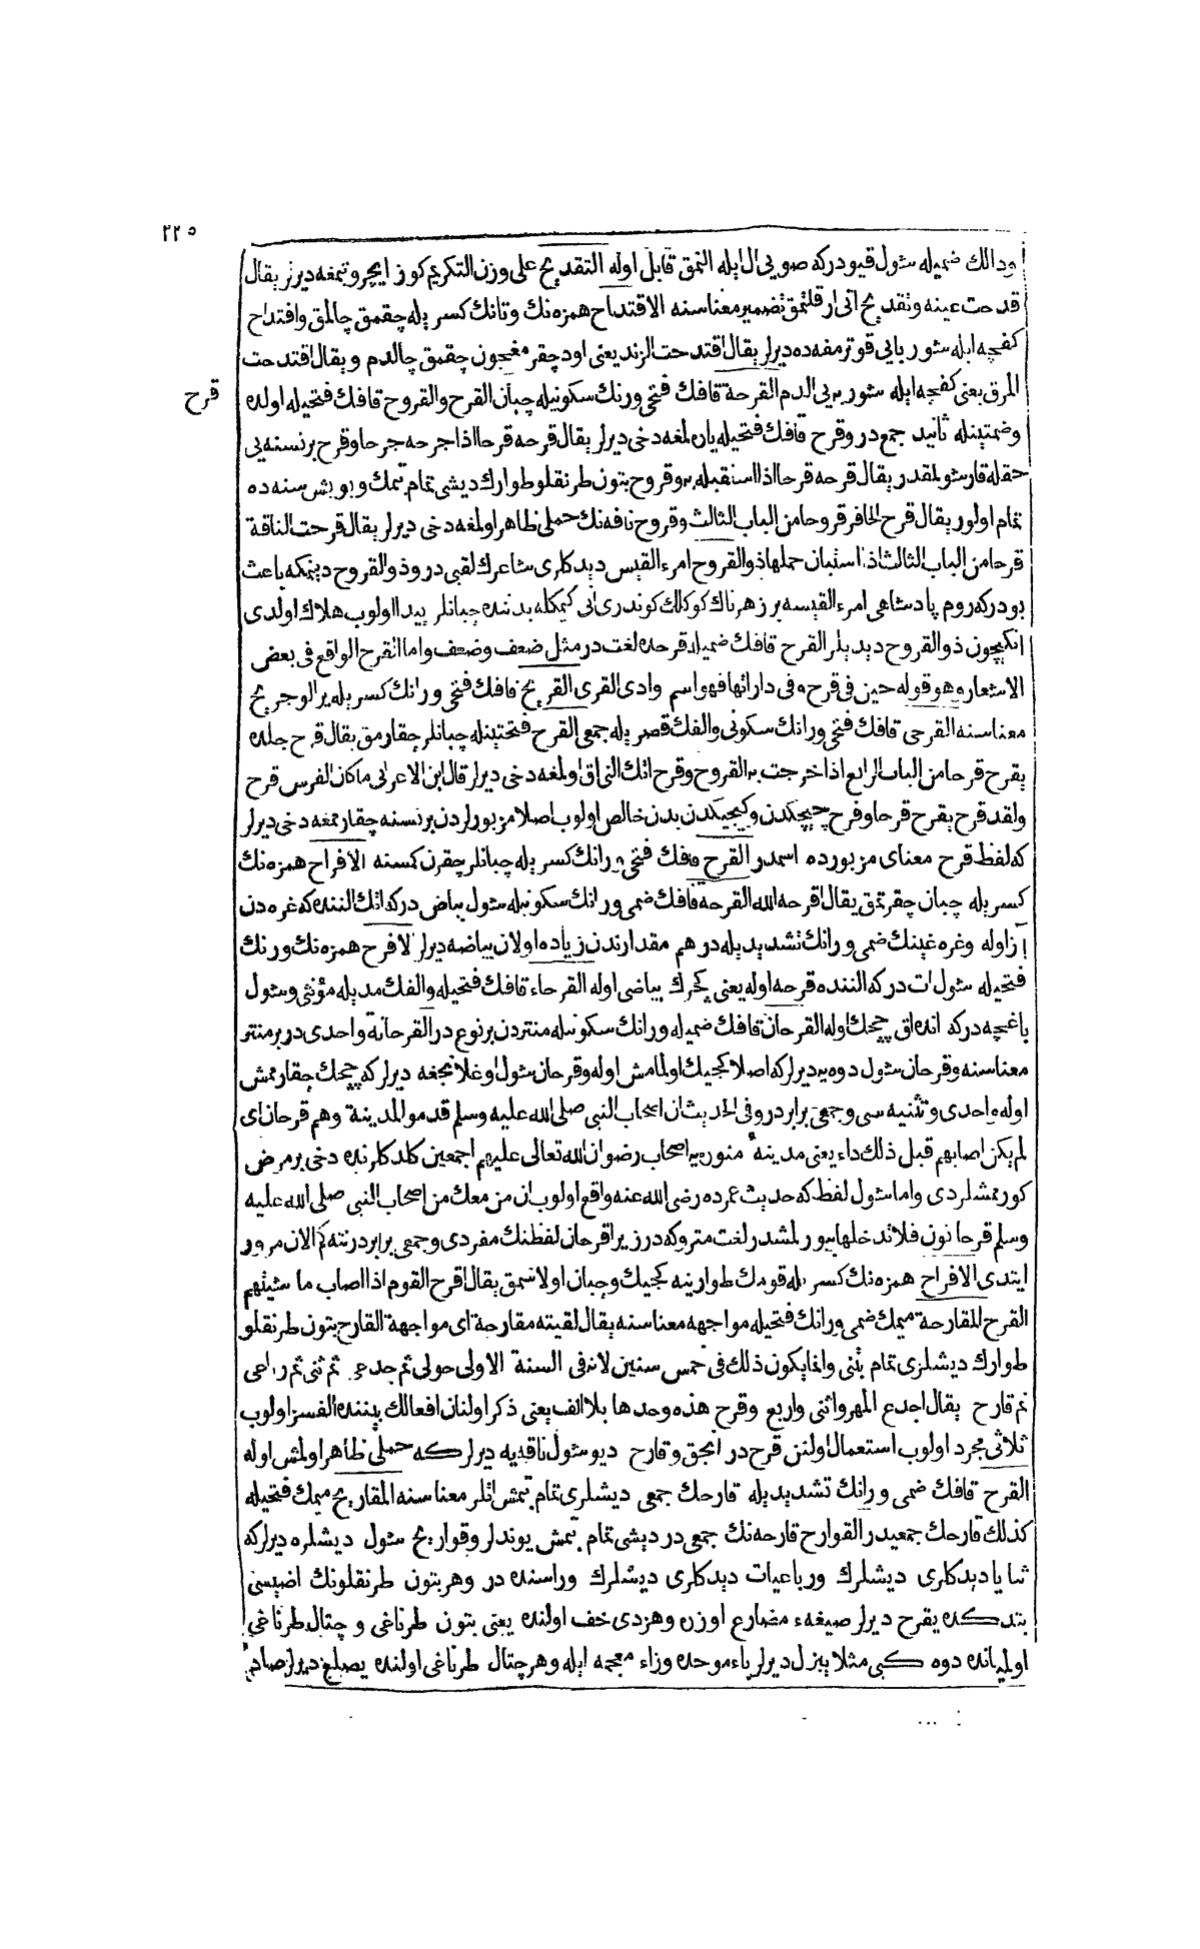 ٢٢٥
ودالك ضميله شول قيودركه صويى ال ايله النمق قابل اوله التقديح على وزن التكريم كوز ايچرو تمغه ديرلر يقال
قدحت عينه وتقديح آتى ارقلتمق تضمير معناسنه الاقتداح همزه نك وتانك كسر يله چقمق چالمق واقتداح
كفچه ايله شوربايى قوترمغه ده ديرلر يقال اقتدحت الزند يعنى اود چقرمغچون چقمق چالدم ويقال اقتدحت
المرق يعنى كفچه ايله شوربه يى الدم القرحة قافك فتحى ورنك سكونيله چبان القرح والقروح قافك فتحيله اوله
قرح
وضمتينله ثانيد جمع در وقرح قافك فتحيله ياره لمغه دخى ديرلر يقال قرحه قرحا اذا جرحه جرحا وقرح بر نسنه يى
حقله قارشولمقدر يقال قرحه قرحا اذا استقبله به وقروح بتون طرنقلو طوارك ديشى تمام بتمك وبو بش سنه ده
تمام اولور يقال قرح الحافر قروحا من الباب الثالث وقروح ناقه نك حملى ظاهر اولمغه دخى ديرلر يقال قرحت الناقة
قرحا من الباب الثالث اذا استبان حملها ذو القروح امرء القيس ديدكلرى شاعرك لقبى در وذو القروح دينمكه باعث
بودركه روم پادشاهى امرء القيسه بر زهرناك كوكلك كوندردى آنى كيمكله بدننده چبانلر پيدا اولوب هلاك اولدى
انكيچون ذو القروح ديديلر القرح قافك ضميله قرحه لغت در مثل ضعف وضعف واما القرح الواقع فى بعض
الاشعار وهو قوله حين فى قرح وفى داراتها فهو اسم وادى القرى القريح قافك فتحى ورانك كسر يله ير الو جريح
معناسنه القرحى قافك فتحى ورانك سكونى والفك قصر يله جمعى القرح فتحتينله چبانلر چقارمق يقال قرح جلده
يقرح قرحا من الباب الرابع اذا خرجت به القروح وقرح انك النى اق اولمغه دخى ديرلر قال ابن الاعرابى ما كان الفرس قرح
ولقد قرح يقرح قرحا وقرح چيچكدن وكيجيكدن بدن خالص اولوب اصلا مزبورلردن بر نسنه چقارممغه دخى ديرلر
كه لفظ قرح معناى مزبورده اسمدر القرح قافك فتحى ورانك كسر يله چبانلر چقرن كمسنه الاقراح همزه نك
كسر يله چبان چقرتمق يقال اقرحه الله القرحة قافك ضمى ورانك سكونيله شول بياض دركه اتك النده كه غره دن
آز اوله وغره غينك ضمى ورانك تشديديله درهم مقدارندن زياده اولان بياضه ديرلر الاقرح همزه نك ورنك
فتحيله شول ات دركه النده قرحه اوله يعنى بياضى اوله القرحاء قافك فتحيله والفك مديله مؤنثى وشول
باغچه دركه انده اق چيچك اوله القرحان قافك ضميله ورانك سكونيله منتردن بر نوع در القرحانة واحدى در بر منتر
معناسنه وقرحان شول دوه يه ديرلر كه اصلا كجيك اولمامش اوله وقرحان شول اوغلانجغه ديرلر كه چيچك چقارممش
اوله واحدى وتثنيه سى وجمعى برابر در وفى الحديث ان اصحاب النبى صلى الله عليه وسلم قدموا المدينة وهم قرحان اى
لم يكن اصابهم قبل ذلك داء يعنى مدينهٔ منوره يه اصحاب رضوان الله تعالى عليهم اجمعين كلدكلرنده دخى بر مرض
كورممشلردى واما شول لفظ كه حديث عمرده رضى الله عنه واقع اولوب ان من معك من اصحاب النبى صلى الله عليه
وسلم قرحانون فلا تدخلها بيورلمشدر لغت متروكه در زيرا قرحان لفظنك مفردى وجمعى برابر در نته كم الان مرور
ايتدى الاقراح همزه نك كسر يله قومك طوارينه كجيك وچبان اولاشمق يقال اقرح القوم اذا اصاب ماشيتهم
القرح المقارحة ميمك ضمى ورانك فتحيله مواجهه معناسنه يقال لقيته مقارحة اى مواجهة القارح بتون طرنقلو
طوارك ديشلرى تمام بتنى وانما يكون ذلك فى خمس سنين لانه فى السنة الاولى حولى ثم جدع ثم ثنى ثم رباعى
ثم قارح يقال اجدع المهر واثنى واربع وقرح هذه وحدها بلا الف يعنى ذكر اولنان افعالك بيننده الفسز اولوب
ثلاثى مجرد اولوب استعمال اولنن قرح در انجق وقارح ديو شول ناقه يه ديرلر كه حملى ظاهر اولمش اوله
القرح قافك ضمى ورانك تشديديله قارحك جمعى ديشلرى تمام بتمش اتلر معناسنه المقاريح ميمك فتحيله
كذلك قارحك جمعيدر القوارح قارحه نك جمعى در ديشى تمام بتمش يوندلر وقواريح شول ديشلره ديرلر كه
ثنايا ديدكلرى ديشلرك ورباعيات ديدكلرى ديشلرك وراسنده در وهر بتون طرنقلونك اضيسى
بتدكده يقرح ديرلر صيغهء مضارع اوزره وهر دى خف اولنده يعنى بتون طرناغى و چتال طرناغى
اولميانده دوه كبى مثلا يبزل ديرلر باء موحده وزاء معجمه ايله وهر چتال طرناغى اولنده يصلغ ديرلر صاد